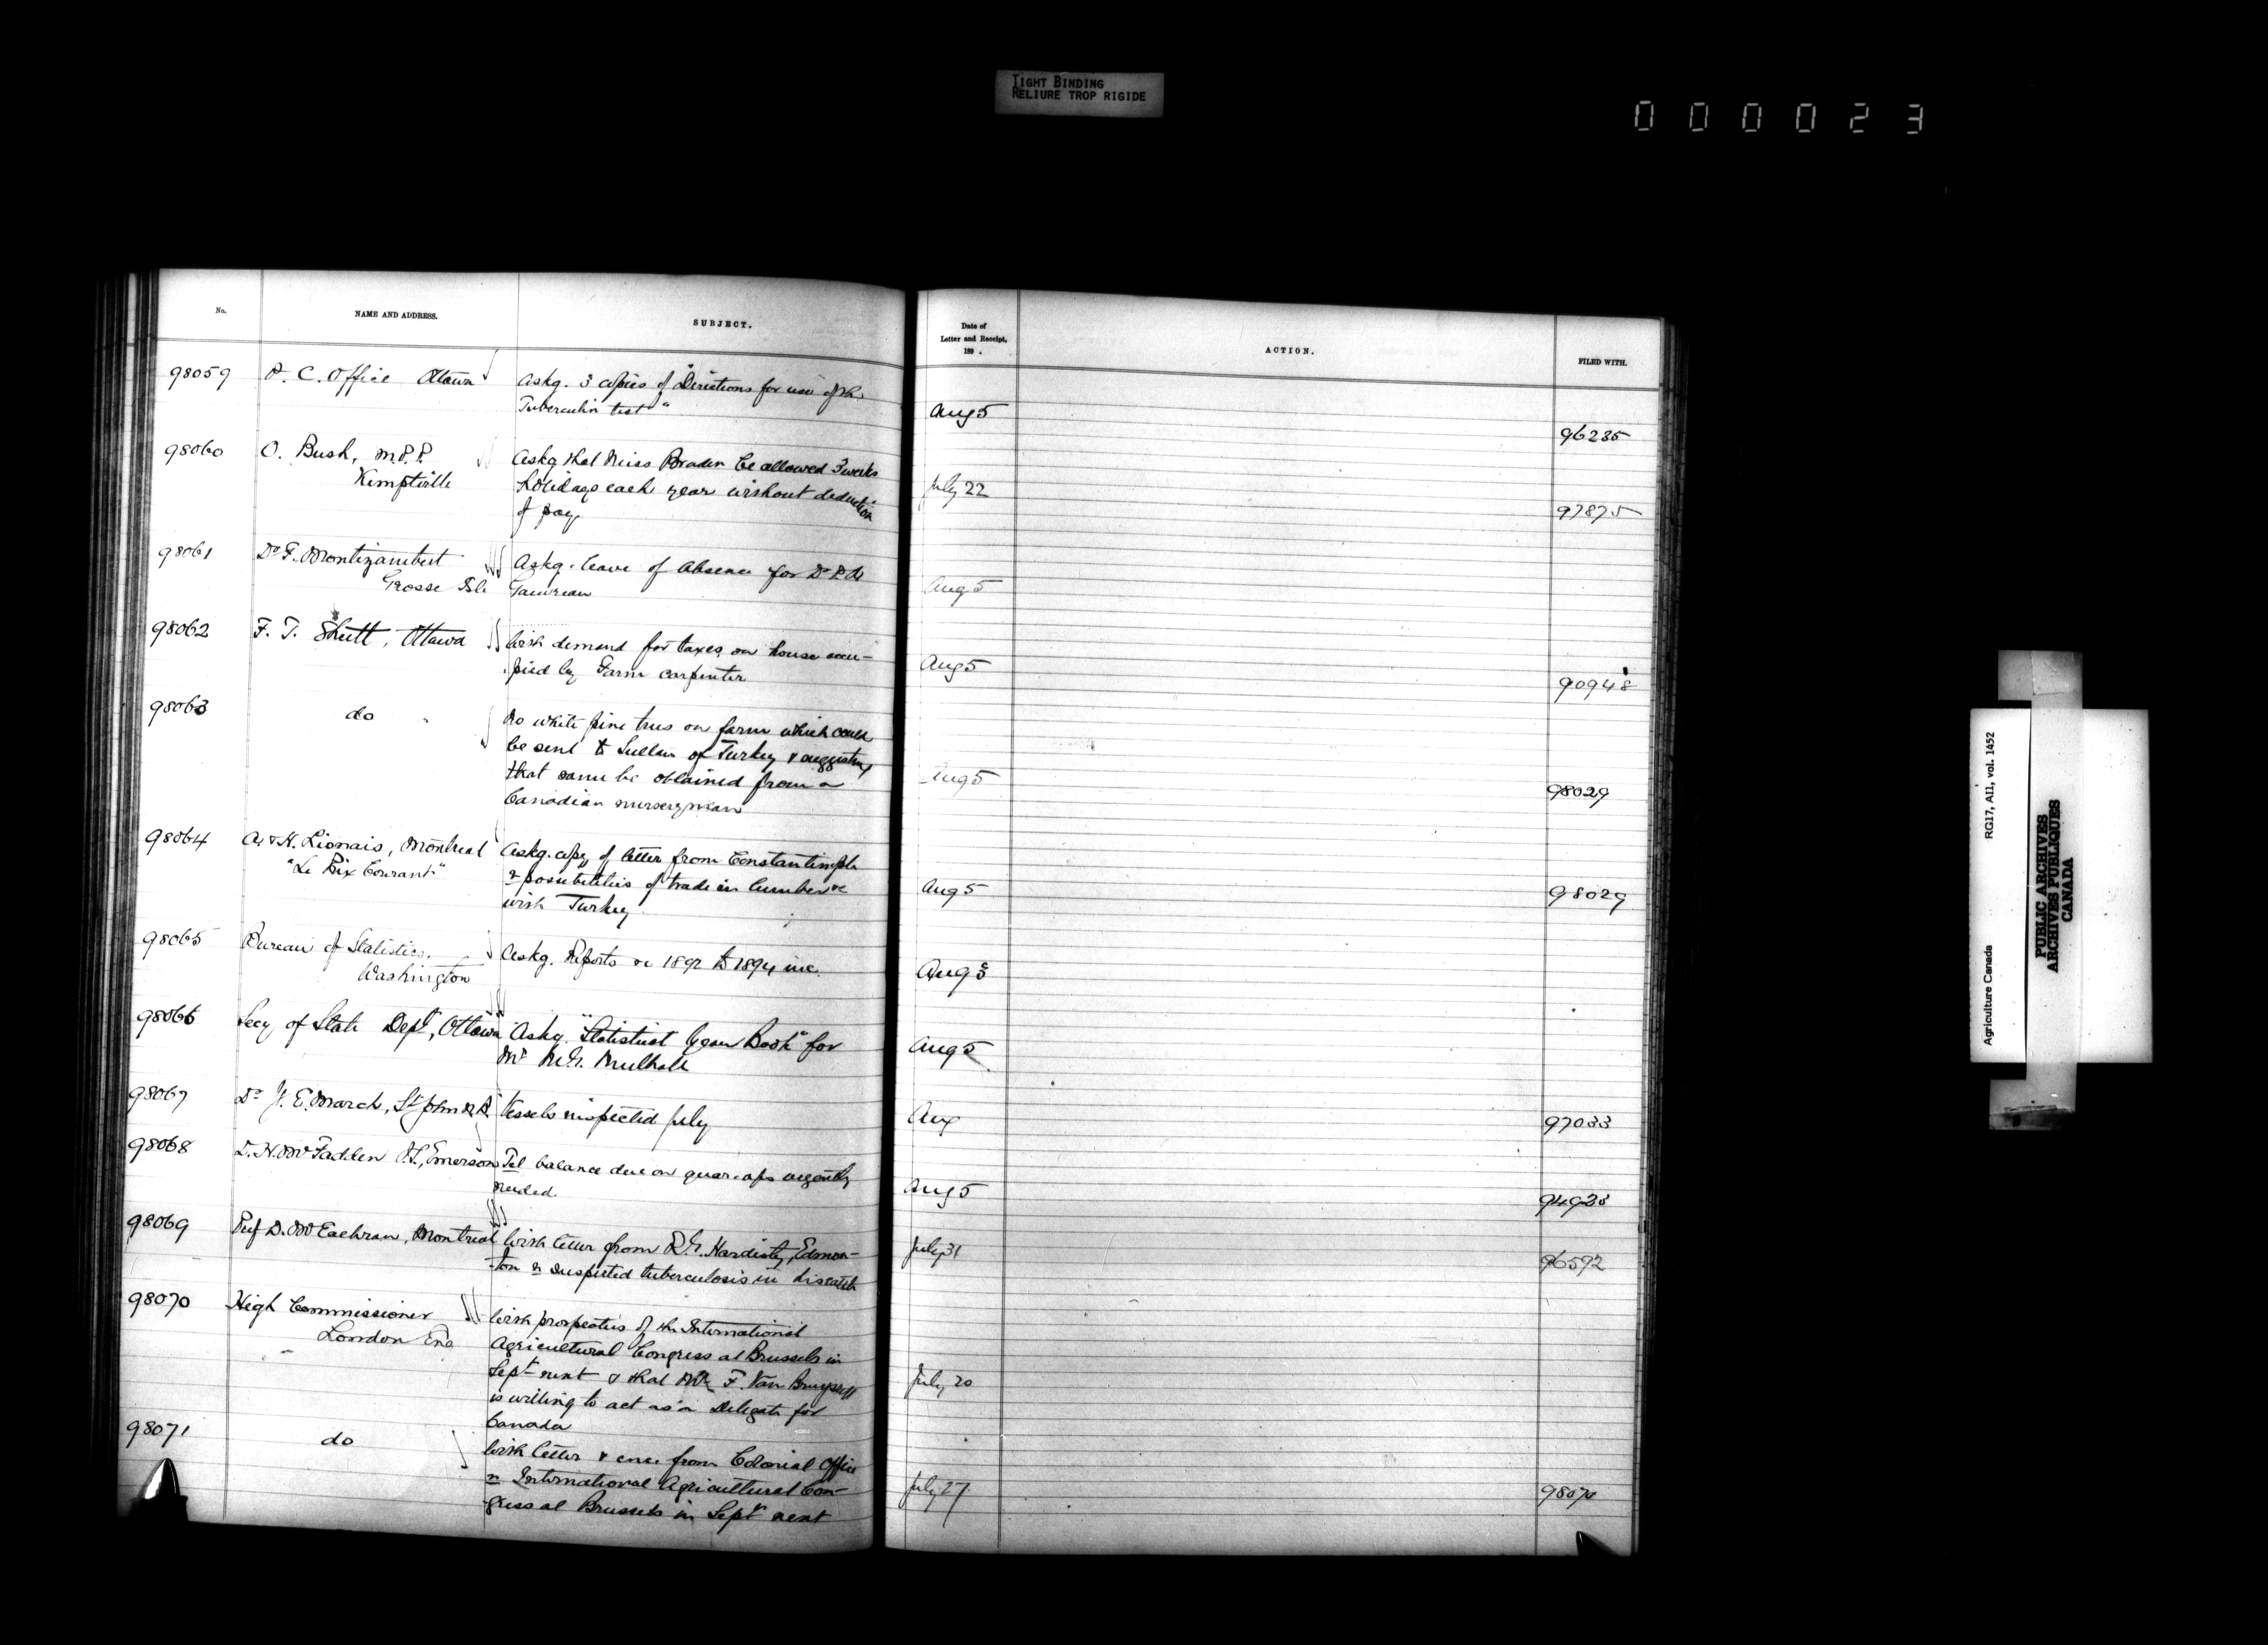 TIGHT BINDING
RELIURE TROP RIGIDE
000023
No.
NAME AND ADDRESS.
SUBJECT.
Date of
Letter and Receipt,
189 .
ACTION.
FILED WITH.
98059 P. C. Office Ottawa Askg. 3 copies of "Directions for use of the
Tuberculin test"
Aug 5
96235
98060 O. Bush, M.P.P. Askg that Miss Braden be allowed 3 weeks
Kemptville holidays each year without deduction
of pay.
July 22
97875
98061 Dr F. Montizambert Askg. leave of absence for Dr
Grosse Isle Gauvreau
Aug 5
98062 F. T. Shutt, Ottawa With demand for taxes on house occu-
pied by Farm carpenter
Aug 5
90948
98063 do No white pine trees on farm which could
be sent to Sultan of Turkey & suggesting
that same be obtained from a
Canadian nurseryman
Aug 5
98029
98064 A. & H. Lionais, Montreal Askg. copy of letter from Constantinople
"Le Prix Courant" re possibilities of trade in lumber &c
with Turkey.
Aug 5
98029
98065 Bureau of Statistics, Askg. Reports &c 1892 to 1894 inc.
Washington
Aug 3
98066 Secy of State Dept, Ottawa Askg. "Statistical Year Book" for
Mr M.G. Mulhall
Aug 5
98067 Dr J. E. March, St John N.B. Vessels inspected July
Aug
97033
98068 D. H. McFadden V.S., Emerson Tel balance due on quar. a/cs urgently
needed.
Aug 5
98069 Prof D. McEachran, Montreal With letter from R.G. Hardisty, Edmon-
ton re suspected tuberculosis in his cattle
July 31
96592
98070 High Commissioner With prospectus of the International
London Eng Agricultural Congress at Brussels in
Sept next & that Mr F. Van Bruyssel
is willing to act as a Delegate for
Canada
July 20
98071 do With letter & enc. from Colonial Office
re International Agricultural Con-
gress at Brussels in Sept next
July 27
98070
Agriculture Canada RG17, AII, vol. 1452
PUBLIC ARCHIVES
ARCHIVES PUBLIQUES
CANADA